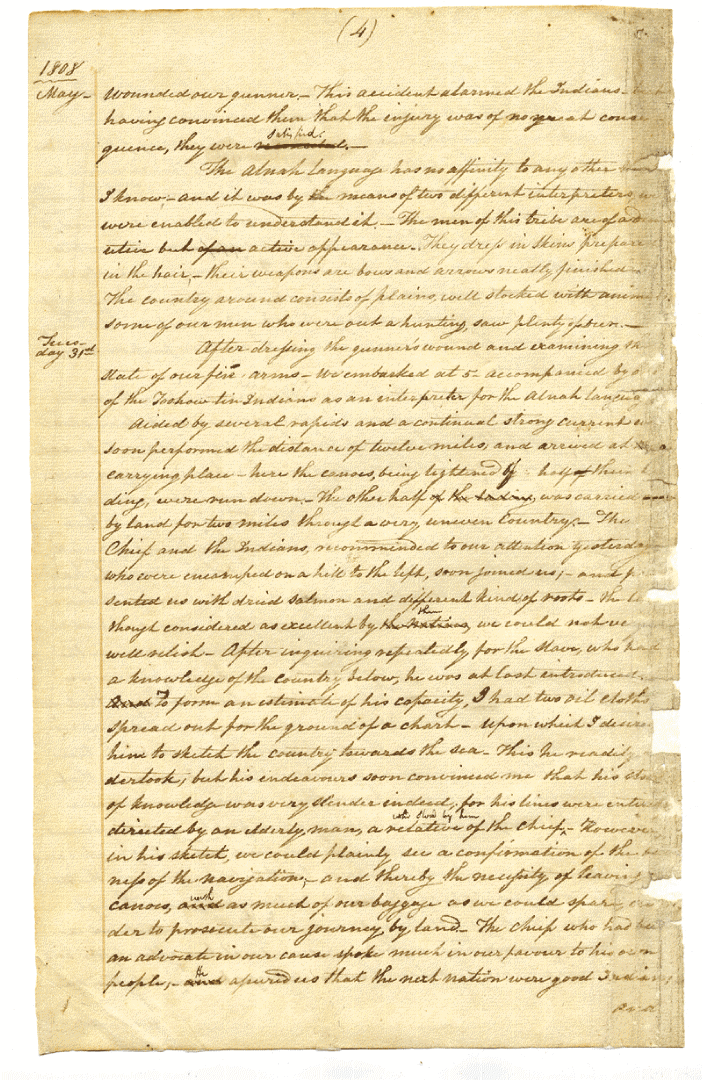 (4)
1808
May
wounded our gunner.– This accident alarmed the Indians–
having convinced them that the injury was of no great conse
quence, they were satisfied.–
The Atnah Language has no affinity to any other
I know;– and it was by the means of two different interpreters,
were enabled to understand it.– The men of this tribe are of a
utive but of an active appearance. They dress in skins prepared
in the hair,– their weapons are bows and arrows neatly finished–
The country around consists of plains, well stocked with
some of our men who were out a hunting, saw plenty of
Tues-
day 31st
After dressing the gunner's wound and examining the
state of our fire arms– We embarked at 5– accompanied by
of the Toohowtin Indians as an interpreter for the Atnah language
Aided by several rapids and a continual strong current
soon performed the distance of twelve miles, and arrived at
carrying place– here the canoes, being lightened of half of their
ding, were run down.– The other half of the lading, was carried
by land for two miles through a very uneven Country;– The
Chief and the Indians, recommended to our attention yesterday
who were encamped on a hill to the left, soon joined us;– and pre
sented us with dried salmon and different kind of roots– the
though considered as excellent by the Natives, them we could not
well relish– After inquiring repeatedly for the slave, who had
a knowledge of the country below, he was at last introduced.
And To form an estimate of his capacity, I had two oil cloths
spread out for the ground of a chart– upon which I desired
him to sketch the country towards the sea– This he readily
dertook; but his endeavours soon convinced me that his stock
of knowledge was very slender indeed, for his lines were entirely
directed by an elderly man, a relative of the Chief, who stood by him– However
in his sketch, we could plainly see a confirmation of the
ness of the navigation;– and thereby the necessity of leaving
canoes, and with as much of our baggage as we could spare,
der to prosecute our journey by land– The Chief who had
an advocate in our cause spoke much in our favour to his own
people,– and He assured us that the next nation were good Indians